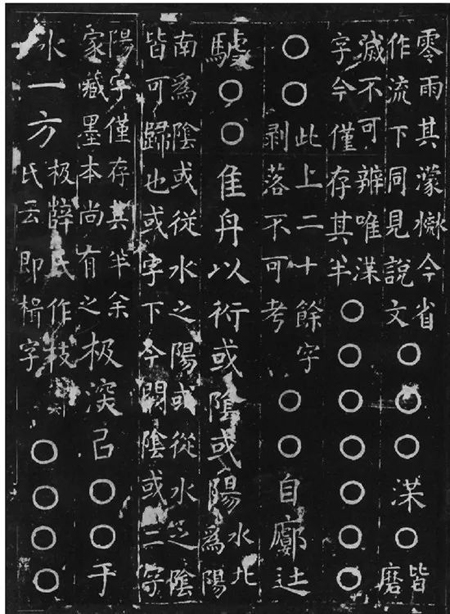 零雨其濛今省
作流下同見說文
○○○渫○
皆
磨
滅不可辨唯渫
字今僅存其半
○○○○○○○
○○
此上二十餘字
剥落不可考
○○自廓
○○隹舟以衍或陰或陽
水北
為陽
南為陰或從水之陽或從水之陰
皆可歸也或字下今闕陰或二字
陽字僅存其半余
家藏墨本尚有之
极深以○○于
水一方
极薛氏作枝
氏云即楫字
○○○○